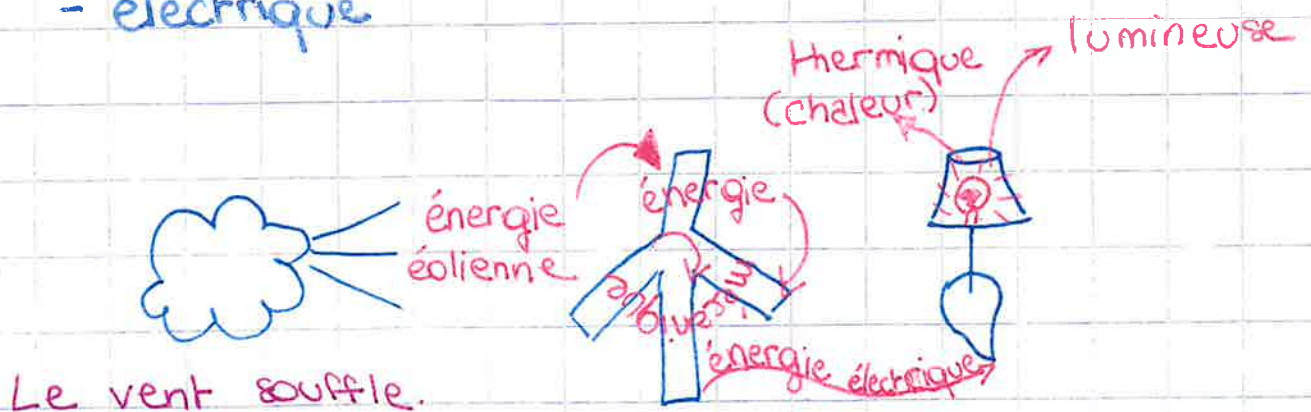 - électrique
lumineuse
thermique
(chaleur)
énergie
éolienne
énergie
mécanique
énergie électrique
Le vent souffle.